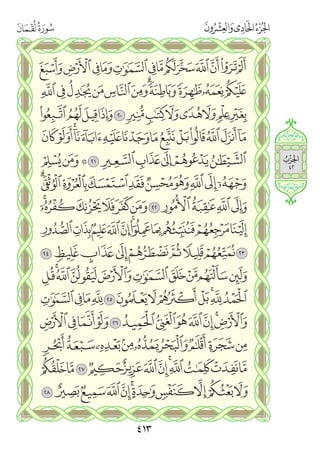 الجُزْءُ الحَادِي وَالعِشْرُونَ
سُورَةُ لُقْمَانَ
أَلَمْ تَرَوْا۟ أَنَّ ٱللَّهَ سَخَّرَ لَكُم مَّا فِى ٱلسَّمَٰوَٰتِ وَمَا فِى ٱلْأَرْضِ وَأَسْبَغَ
عَلَيْكُمْ نِعَمَهُۥ ظَٰهِرَةً وَبَاطِنَةً ۗ وَمِنَ ٱلنَّاسِ مَن يُجَٰدِلُ فِى ٱللَّهِ
بِغَيْرِ عِلْمٍ وَلَا هُدًى وَلَا كِتَٰبٍ مُّنِيرٍ ٢٠ وَإِذَا قِيلَ لَهُمُ ٱتَّبِعُوا۟
مَآ أَنزَلَ ٱللَّهُ قَالُوا۟ بَلْ نَتَّبِعُ مَا وَجَدْنَا عَلَيْهِ ءَابَآءَنَآ ۚ أَوَلَوْ كَانَ
ٱلشَّيْطَٰنُ يَدْعُوهُمْ إِلَىٰ عَذَابِ ٱلسَّعِيرِ ٢١ ۞ وَمَن يُسْلِمْ
وَجْهَهُۥٓ إِلَى ٱللَّهِ وَهُوَ مُحْسِنٌ فَقَدِ ٱسْتَمْسَكَ بِٱلْعُرْوَةِ ٱلْوُثْقَىٰ ۗ
وَإِلَى ٱللَّهِ عَٰقِبَةُ ٱلْأُمُورِ ٢٢ وَمَن كَفَرَ فَلَا يَحْزُنكَ كُفْرُهُۥٓ ۚ
إِلَيْنَا مَرْجِعُهُمْ فَنُنَبِّئُهُم بِمَا عَمِلُوٓا۟ ۚ إِنَّ ٱللَّهَ عَلِيمٌۢ بِذَاتِ ٱلصُّدُورِ
٢٣ نُمَتِّعُهُمْ قَلِيلًا ثُمَّ نَضْطَرُّهُمْ إِلَىٰ عَذَابٍ غَلِيظٍ ٢٤
وَلَئِن سَأَلْتَهُم مَّنْ خَلَقَ ٱلسَّمَٰوَٰتِ وَٱلْأَرْضَ لَيَقُولُنَّ ٱللَّهُ ۚ قُلِ
ٱلْحَمْدُ لِلَّهِ ۚ بَلْ أَكْثَرُهُمْ لَا يَعْلَمُونَ ٢٥ لِلَّهِ مَا فِى ٱلسَّمَٰوَٰتِ
وَٱلْأَرْضِ ۚ إِنَّ ٱللَّهَ هُوَ ٱلْغَنِىُّ ٱلْحَمِيدُ ٢٦ وَلَوْ أَنَّمَا فِى ٱلْأَرْضِ
مِن شَجَرَةٍ أَقْلَٰمٌ وَٱلْبَحْرُ يَمُدُّهُۥ مِنۢ بَعْدِهِۦ سَبْعَةُ أَبْحُرٍ
مَّا نَفِدَتْ كَلِمَٰتُ ٱللَّهِ ۗ إِنَّ ٱللَّهَ عَزِيزٌ حَكِيمٌ ٢٧ مَّا خَلْقُكُمْ
وَلَا بَعْثُكُمْ إِلَّا كَنَفْسٍ وَٰحِدَةٍ ۗ إِنَّ ٱللَّهَ سَمِيعٌۢ بَصِيرٌ ٢٨
الحزب
٤١٣